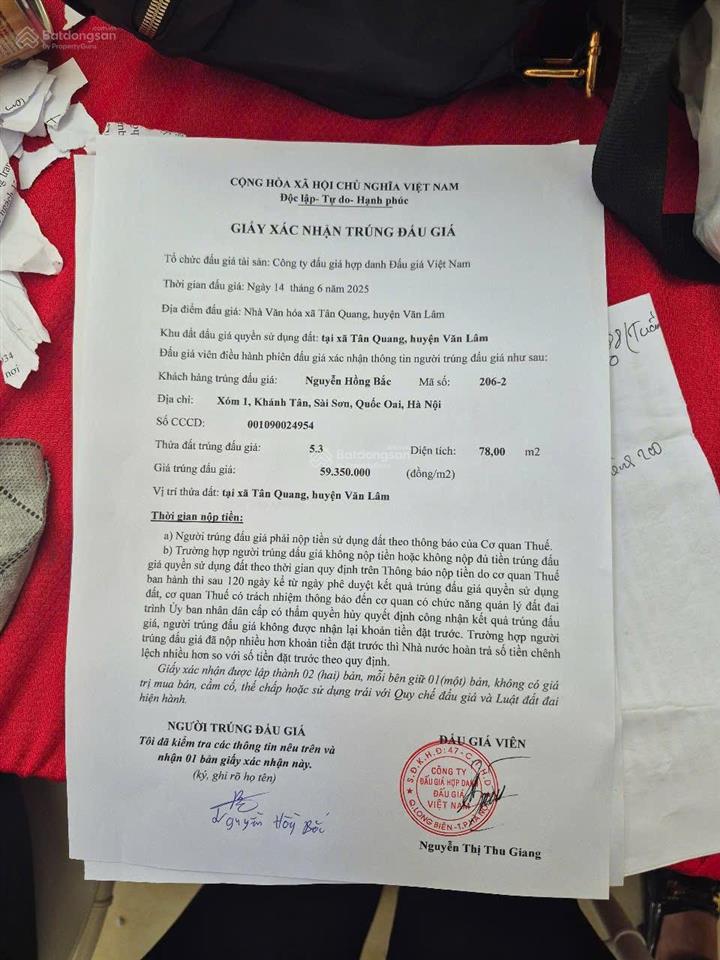 Batdongsan
by PropertyGuru
CỘNG HÒA XÃ HỘI CHỦ NGHĨA VIỆT NAM
Độc lập- Tự do- Hạnh phúc
GIẤY XÁC NHẬN TRÚNG ĐẤU GIÁ
Tổ chức đấu giá tài sản: Công ty đấu giá hợp danh Đấu giá Việt Nam
Thời gian đấu giá: Ngày 14 tháng 6 năm 2025
Địa điểm đấu giá: Nhà Văn hóa xã Tân Quang, huyện Văn Lâm
Khu đất đấu giá quyền sử dụng đất: tại xã Tân Quang, huyện Văn Lâm
Đấu giá viên điều hành phiên đấu giá xác nhận thông tin người trúng đấu giá như sau:
Khách hàng trúng đấu giá: Nguyễn Hồng Bắc Mã số: 206-2
Địa chỉ: Xóm 1, Khánh Tân, Sài Sơn, Quốc Oai, Hà Nội
Số CCCD: 001090024954
Thửa đất trúng đấu giá: 5.3 Diện tích: 78,00 m2
Batdongsan
Giá trúng đấu giá: 59.350.000 (đồng/m2)
Vị trí thửa đất: tại xã Tân Quang, huyện Văn Lâm
Thời gian nộp tiền:
a) Người trúng đấu giá phải nộp tiền sử dụng đất theo thông báo của Cơ quan Thuế.
b) Trường hợp người trúng đấu giá không nộp tiền hoặc không nộp đủ tiền trúng đấu
giá quyền sử dụng đất theo thời gian quy định trên Thông báo nộp tiền do cơ quan Thuế
ban hành thì sau 120 ngày kể từ ngày phê duyệt kết quả trúng đấu giá quyền sử dụng
đất, cơ quan Thuế có trách nhiệm thông báo đến cơ quan có chức năng quản lý đất đai
trình Ủy ban nhân dân cấp có thẩm quyền hủy quyết định công nhận kết quả trúng đấu
giá, người trúng đấu giá không được nhận lại khoản tiền đặt trước. Trường hợp người
trúng đấu giá đã nộp nhiều hơn khoản tiền đặt trước thì Nhà nước hoàn trả số tiền chênh
lệch nhiều hơn so với số tiền đặt trước theo quy định.
Giấy xác nhận được lập thành 02 (hai) bản, mỗi bên giữ 01(một) bản, không có giá
trị mua bán, cầm cố, thế chấp hoặc sử dụng trái với Quy chế đấu giá và Luật đất đai
hiện hành.
NGƯỜI TRÚNG ĐẤU GIÁ
Tôi đã kiểm tra các thông tin nêu trên và
nhận 01 bản giấy xác nhận này.
(ký, ghi rõ họ tên)
Nguyễn Hồng Bắc
ĐẤU GIÁ VIÊN
CÔNG TY
ĐẤU GIÁ HỢP DANH
ĐẤU GIÁ
VIỆT NAM
Q.LONG BIÊN-T.P HÀ NỘI
Nguyễn Thị Thu Giang